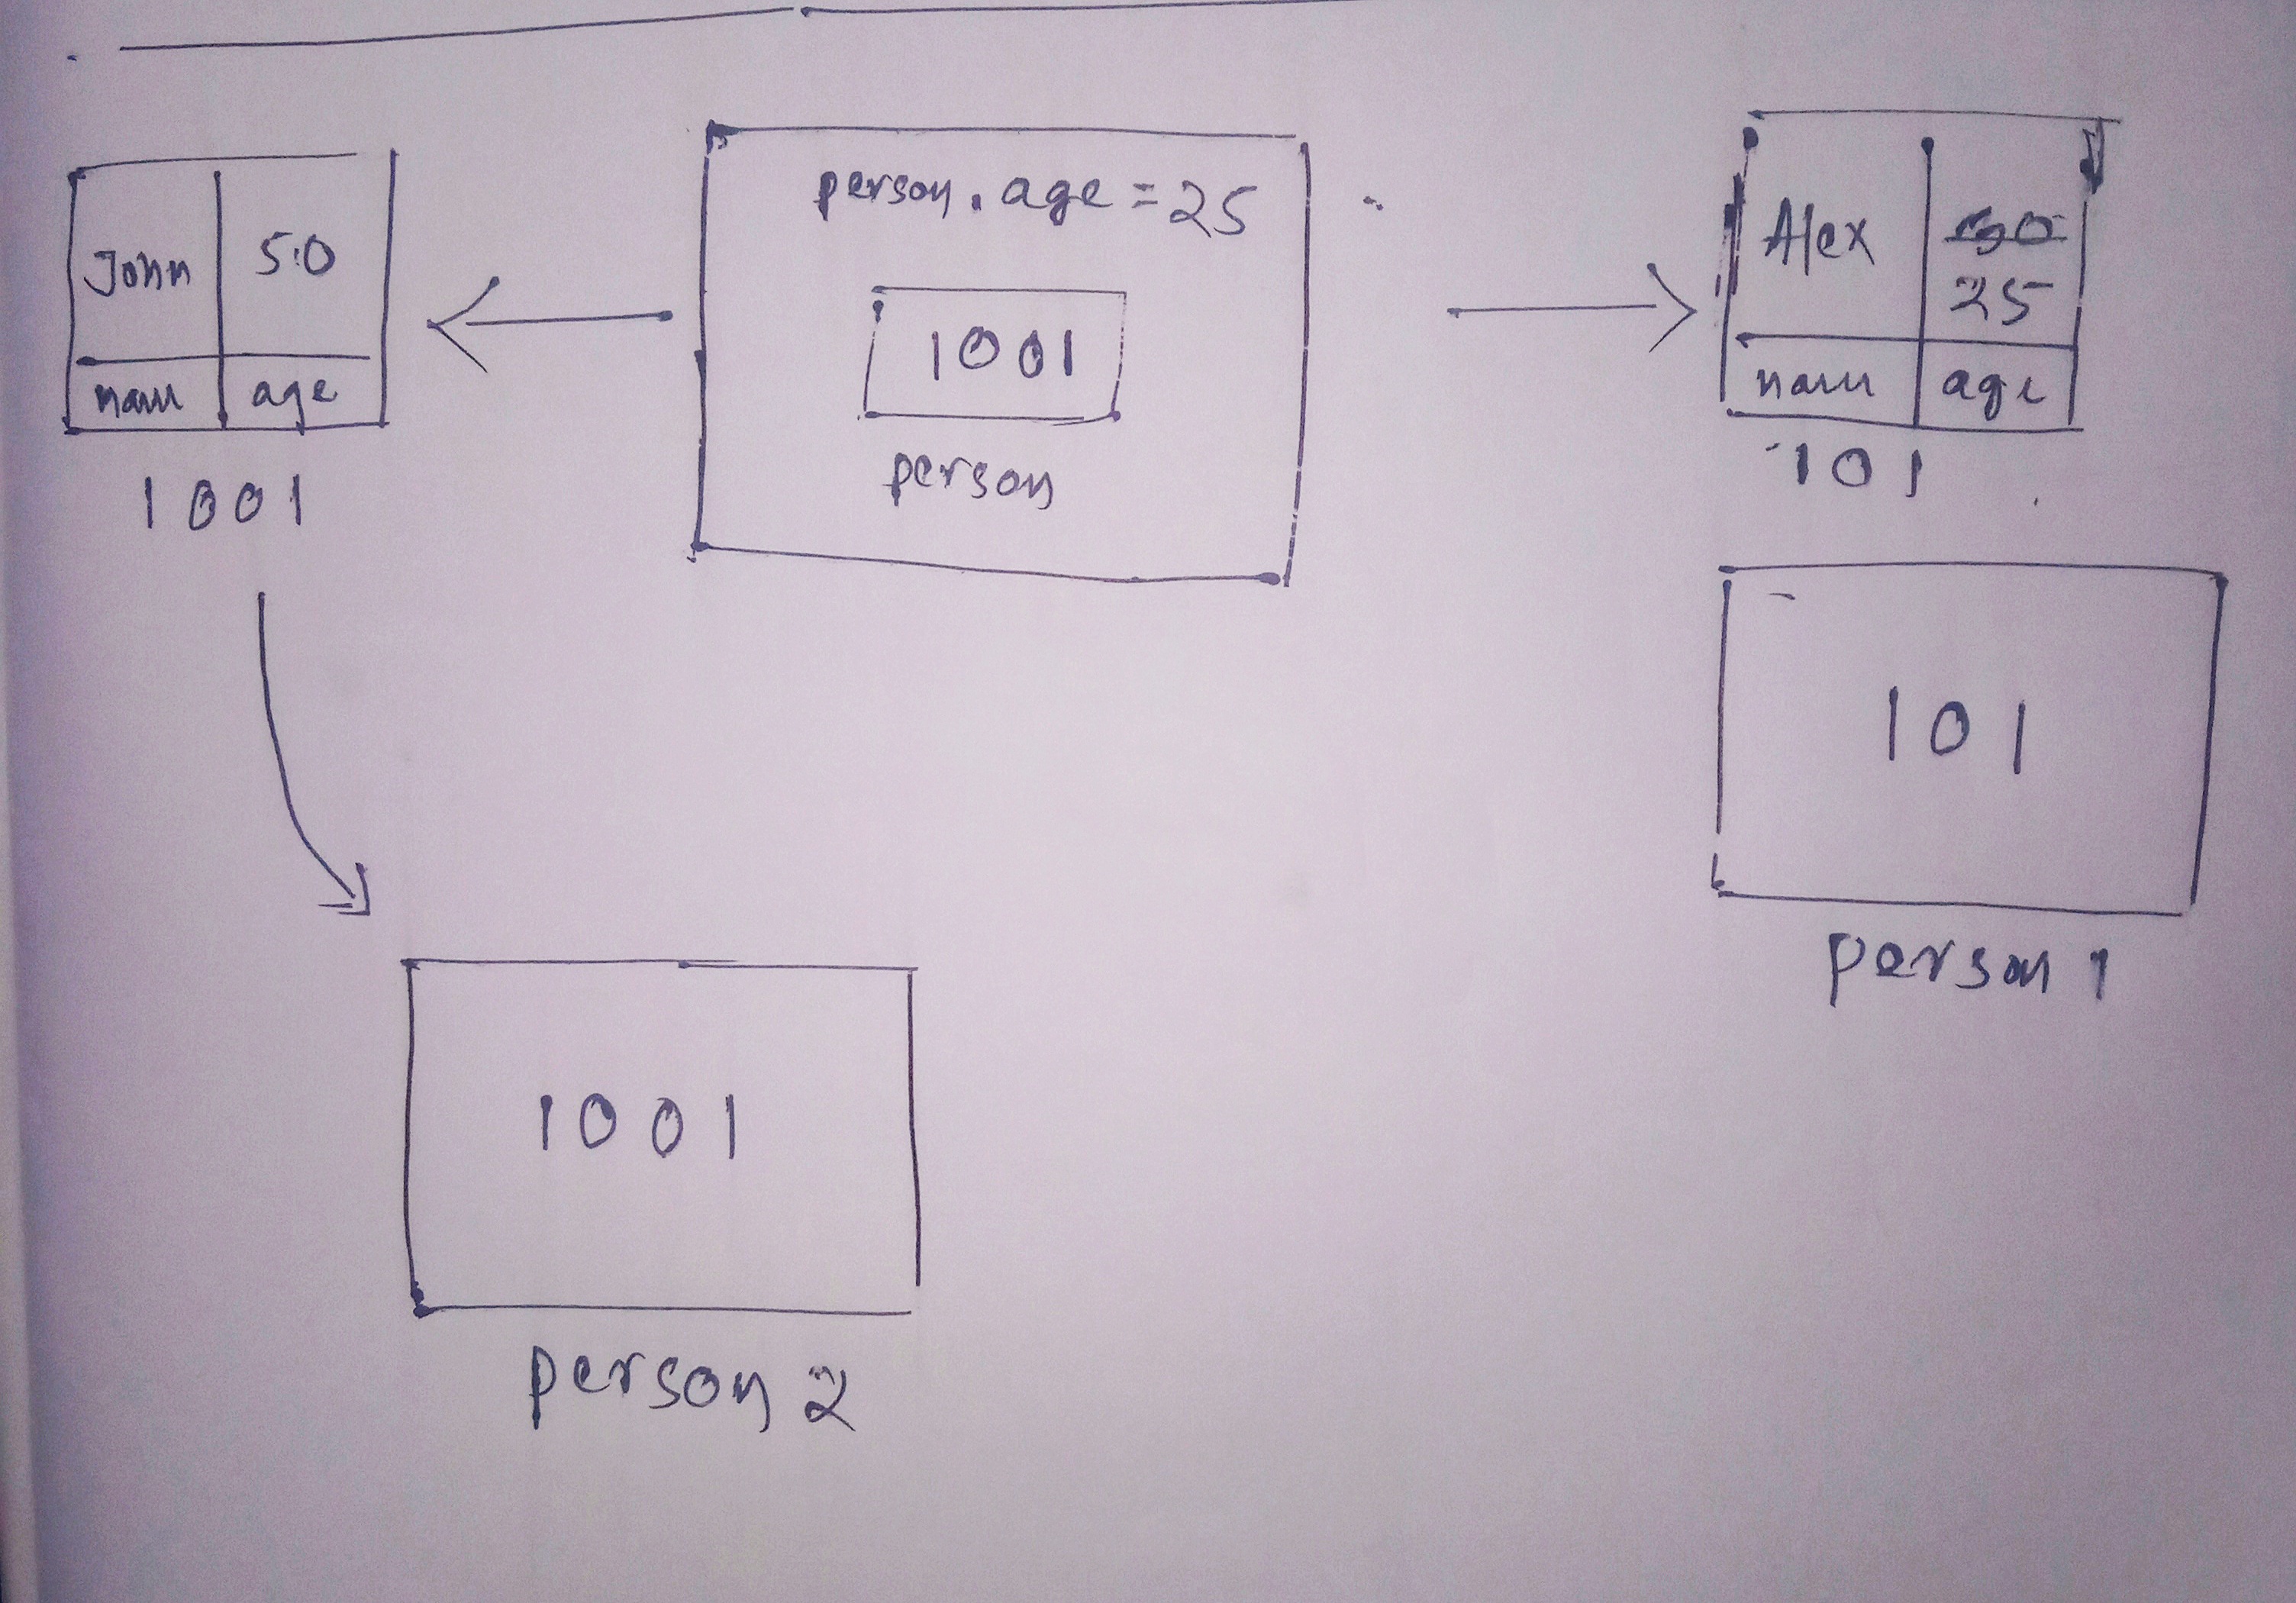 John 50
name age
1001
person.age = 25
1001
person
Alex 25
name age
101
101
person 1
1001
person 2